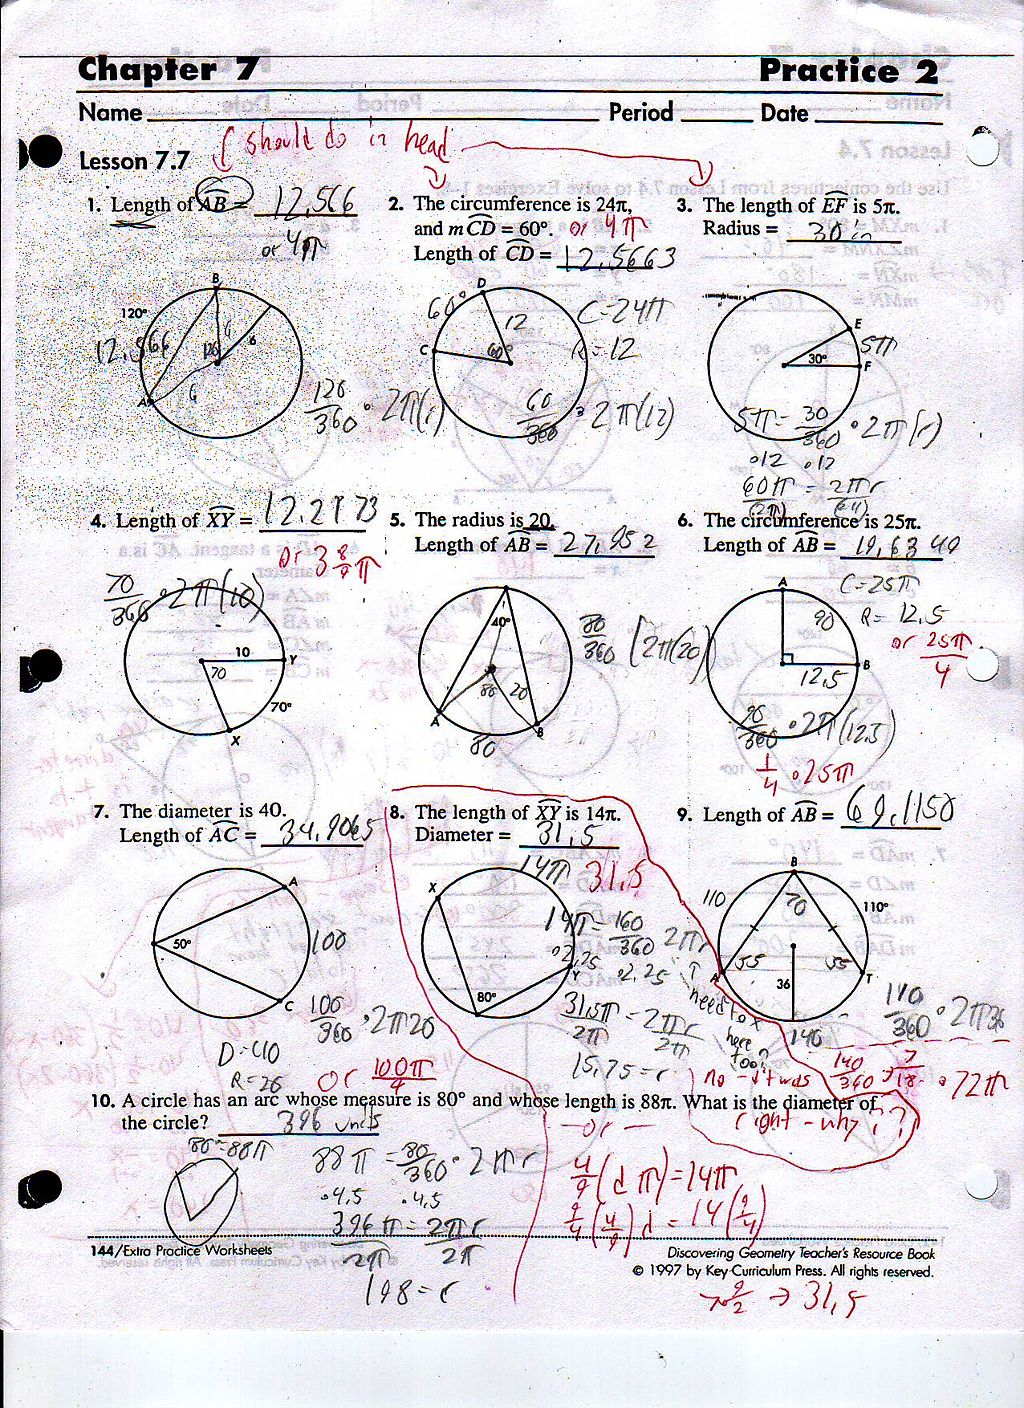 Chapter 7 Practice 2
Name Period Date
Lesson 7.7
should do in head
1. Length of AB = 12.566
or 4π
120°
B
A
12.566
6
6
6
120
120/360 · 2π(r)
2. The circumference is 24π,
and m CD = 60°. or 4π
Length of CD = 12.5663
60°
D
C
12
60°
C=24π
R=12
60/360 · 2π(12)
3. The length of EF is 5π.
Radius = 30 in
E
F
30°
5π
5π = 30/360 · 2π(r)
·12 ·12
60π = 2πr
(2π) (2π)
4. Length of XY = 12.2173
or 3 8/9 π
70/360 · 2π(10)
10
Y
70
70°
X
5. The radius is 20.
Length of AB = 27.952
40°
80 20
A
B
80
80/360 (2π(20))
6. The circumference is 25π.
Length of AB = 19.6349
A
C=25π
90
R= 12.5
or 25π/4
B
12.5
90/360 · 2π(12.5)
1/4 · 25π
7. The diameter is 40.
Length of AC = 34.9065
A
50°
100
C
100/360 · 2π20
D=40
R=20
or 100π/9
8. The length of XY is 14π.
Diameter = 31.5
14π 31.5
X
Y
80°
14π = 160/360 2πr
·2.25 ·2.25
31.5π = 2πr
2π 2π
15.75 = r
need to x
here
too?
no - it was
right - why??
- or -
4/9 (d π) = 14π
9/4 (4/9) d = 14 (9/4)
7·9/2 → 31.5
9. Length of AB = 69.1150
B
110
70
110°
A
55
55
T
36
140
110/360 · 2π36
140/360 → 7/18 · 72π
10. A circle has an arc whose measure is 80° and whose length is 88π. What is the diameter of
the circle? 396 units
80°=88π
88π = 80/360 · 2πr
·4.5 ·4.5
396π = 2πr
2π 2π
198 = r
144/Extra Practice Worksheets
Discovering Geometry Teacher's Resource Book
© 1997 by Key Curriculum Press. All rights reserved.